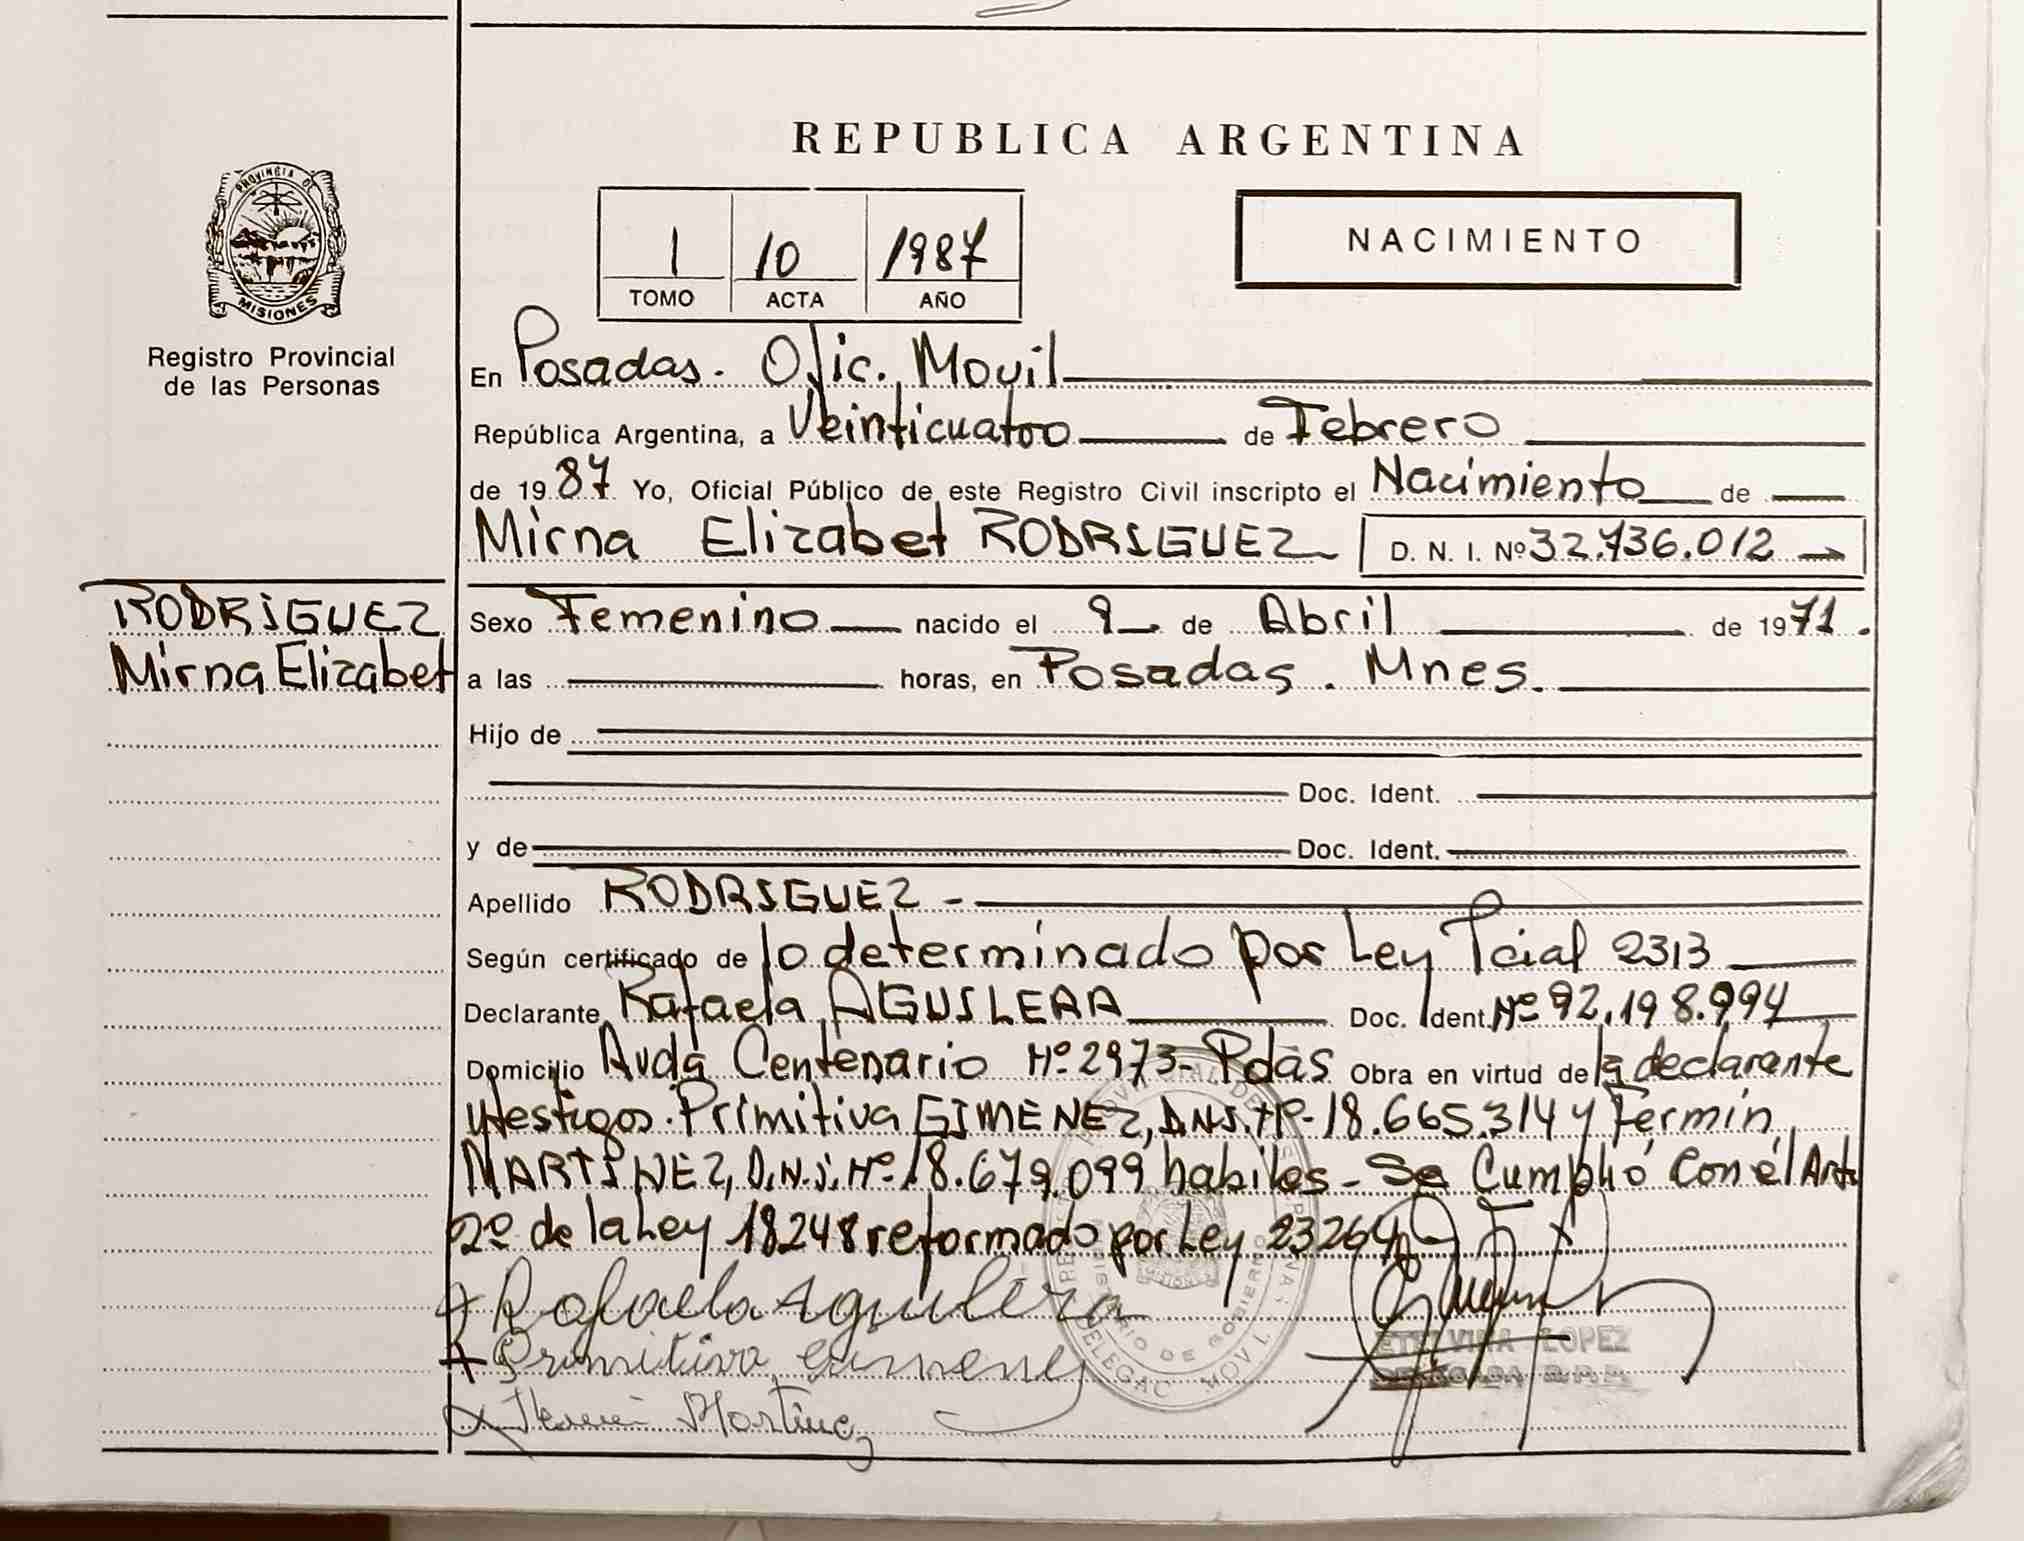 REPUBLICA ARGENTINA
PROVINCIA DE
MISIONES
Registro Provincial
de las Personas
1 10 1987
TOMO ACTA AÑO
NACIMIENTO
En Posadas. Ofic. Movil
República Argentina, a Veinticuatro de Febrero
de 1987 Yo, Oficial Público de este Registro Civil inscripto el Nacimiento de
Mirna Elizabet RODRIGUEZ D. N. I. Nº 32.736.012
RODRIGUEZ
Mirna Elizabet
Sexo Femenino nacido el 9 de Abril de 1971.
a las horas, en Posadas. Mnes.
Hijo de
Doc. Ident.
y de Doc. Ident.
Apellido RODRIGUEZ -
Según certificado de lo determinado por Ley Pcial 2313
Declarante Rafaela AGUILERA Doc. Ident. Nº 92.198.994
Domicilio Avda Centenario Nº 2973- Pdas Obra en virtud de la declarante
y testigos. Primitiva GIMENEZ, D.N.I. Nº- 18.665.314 y Fermin
MARTINEZ, D.N.I. Nº 18.679.099 habiles - Se Cumplió con el Art
2º de la Ley 18248 reformado por Ley 23264
Rafaela Aguilera
Primitiva Gimenez
Fermin Martinez
DELEGAC. MOVIL
MINISTERIO DE GOBIERNO
MISIONES
ETELVINA LOPEZ